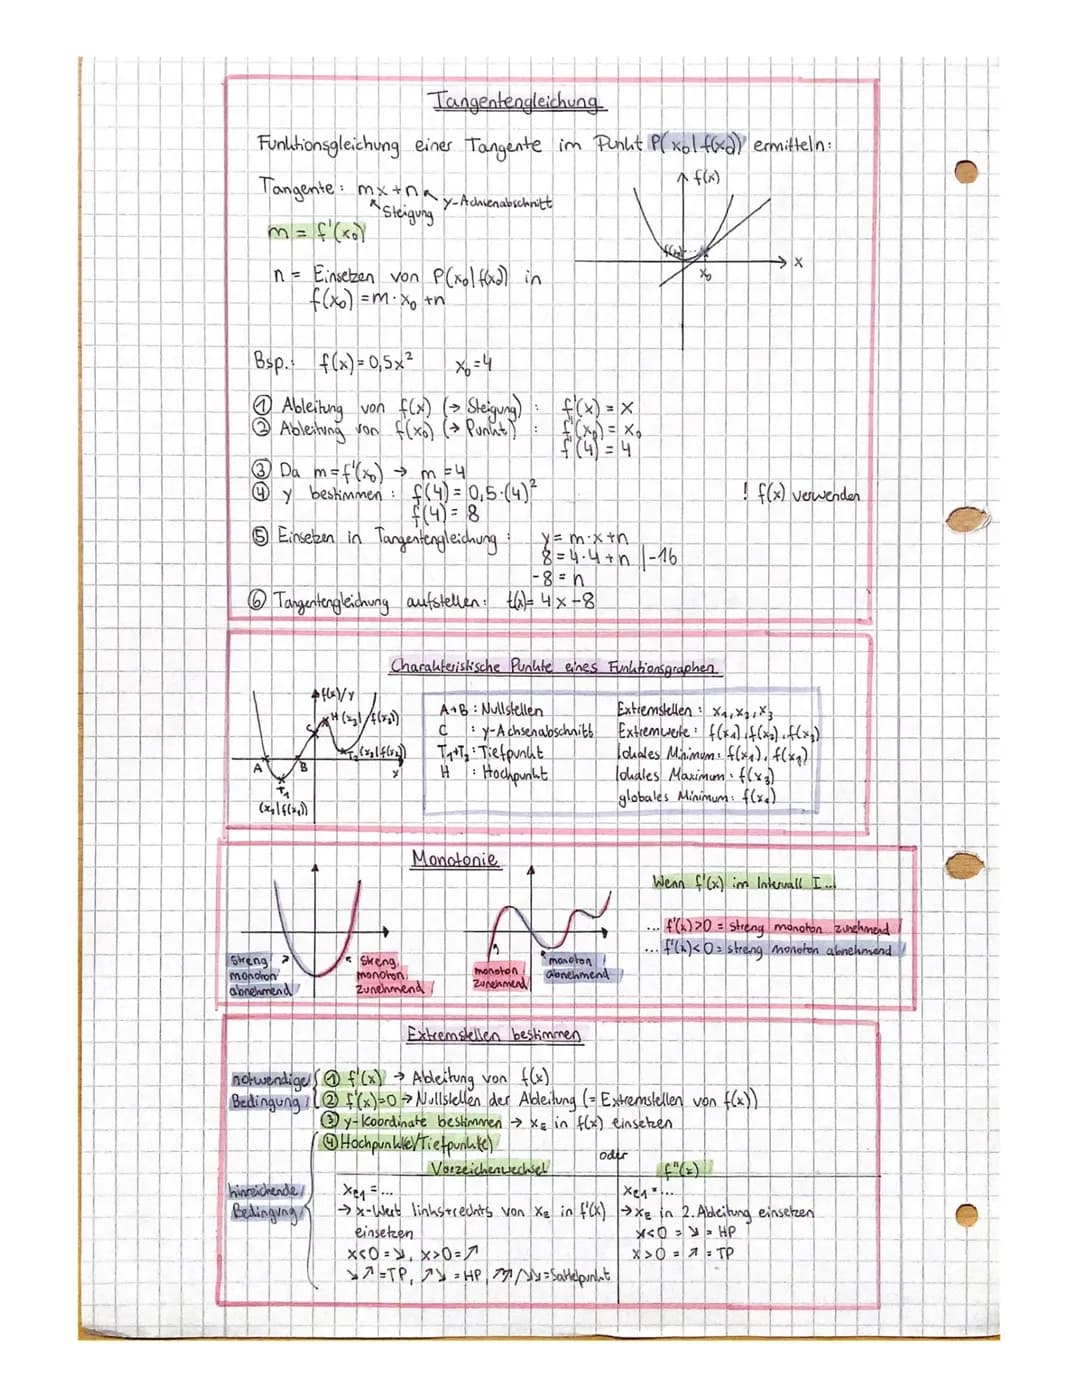 Tangentengleichung
Funktionsgleichung einer Tangente im Punkt P(x₀|f(x₀)) ermitteln:
Tangente: mx+n
Steigung
y-Achsenabschnitt
m = f'(x₀)
n = Einsetzen von P(x₀|f(x₀)) in
f(x₀) = m·x₀ +n
f(x)
f(x₀)
x₀
x
Bsp.: f(x) = 0,5x² x₀=4
① Ableitung von f(x) (→ Steigung) : f'(x) = x
② Ableitung von f(x₀) (→ Punkt) : f'(x₀) = x₀
f'(4) = 4
③ Da m=f'(x₀) → m=4
④ y bestimmen : f(4) = 0,5·(4)² ! f(x) verwenden
f(4) = 8
⑤ Einsetzen in Tangentengleichung : y = m·x+n
8 = 4·4+n |-16
-8 = n
⑥ Tangentengleichung aufstellen: t(x)= 4x-8
Charakteristische Punkte eines Funktionsgraphen
f(x)/y
H (x₃|f(x₃))
C
T₂(x₂|f(x₂))
A
B
x
T₁
(x₁|f(x₁))
A+B : Nullstellen
C : y-Achsenabschnitt
T₁+T₂ : Tiefpunkt
H : Hochpunkt
Extremstellen : x₁, x₂, x₃
Extremwerte : f(x₁), f(x₂), f(x₃)
lokales Minimum: f(x₁), f(x₂)
lokales Maximum : f(x₃)
globales Minimum: f(x₁)
Monotonie
Streng
monoton
abnehmend
Streng
monoton
zunehmend
monoton
zunehmend
monoton
abnehmend
Wenn f'(x) im Intervall I...
... f'(x)>0 = streng monoton zunehmend
... f'(x)<0 = streng monoton abnehmend
Extremstellen bestimmen
notwendige
Bedingung
① f'(x) → Ableitung von f(x)
② f'(x)=0 → Nullstellen der Ableitung (= Extremstellen von f(x))
③ y-Koordinate bestimmen → xE in f(x) einsetzen
④ Hochpunkte/Tiefpunkte)
hinreichende
Bedingung
Vorzeichenwechsel
xE1 = ...
→ x-Wert links+rechts von xE in f'(x)
einsetzen
x<0 = ↘, x>0 = ↗
↘↗ = TP, ↗↘ = HP, ↗↗/↘↘ = Sattelpunkt
oder
f''(x)
xE1 = ...
→ xE in 2. Ableitung einsetzen
x<0 = ↘ = HP
x>0 = ↗ = TP